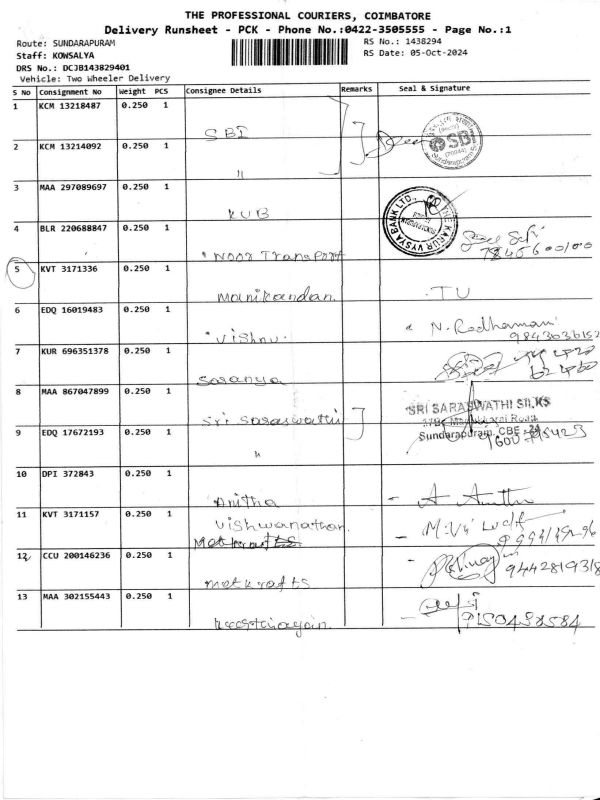 THE PROFESSIONAL COURIERS, COIMBATORE
Delivery Runsheet - PCK - Phone No.:0422-3505555 - Page No.:1
Route: SUNDARAPURAM
RS No.: 1438294
Staff: KOWSALYA
RS Date: 05-Oct-2024
DRS No.: DCJB143829401
Vehicle: Two Wheeler Delivery
S No Consignment No Weight PCS Consignee Details Remarks Seal & Signature
1 KCM 13218487 0.250 1
SBI
SBI
2 KCM 13214092 0.250 1
"
3 MAA 297089697 0.250 1
KUB
THE KARUR VYSYA BANK LTD.,
4 BLR 220688847 0.250 1
Noor Transport
5 KVT 3171336 0.250 1
Manikandan. TU
6 EDQ 16019483 0.250 1
Vishnu. N. Radhamani
7 KUR 696351378 0.250 1
Saranya
8 MAA 867047899 0.250 1
Sri Saraswathi
SRI SARASWATHI SILKS
9 EDQ 17672193 0.250 1
Sundarapuram, CBE - 24
"
10 DPI 372843 0.250 1
Anitha
11 KVT 3171157 0.250 1
Vishwanathan
12 CCU 200146236 0.250 1
Metkrafts 9442819318
13 MAA 302155443 0.250 1
9150438584